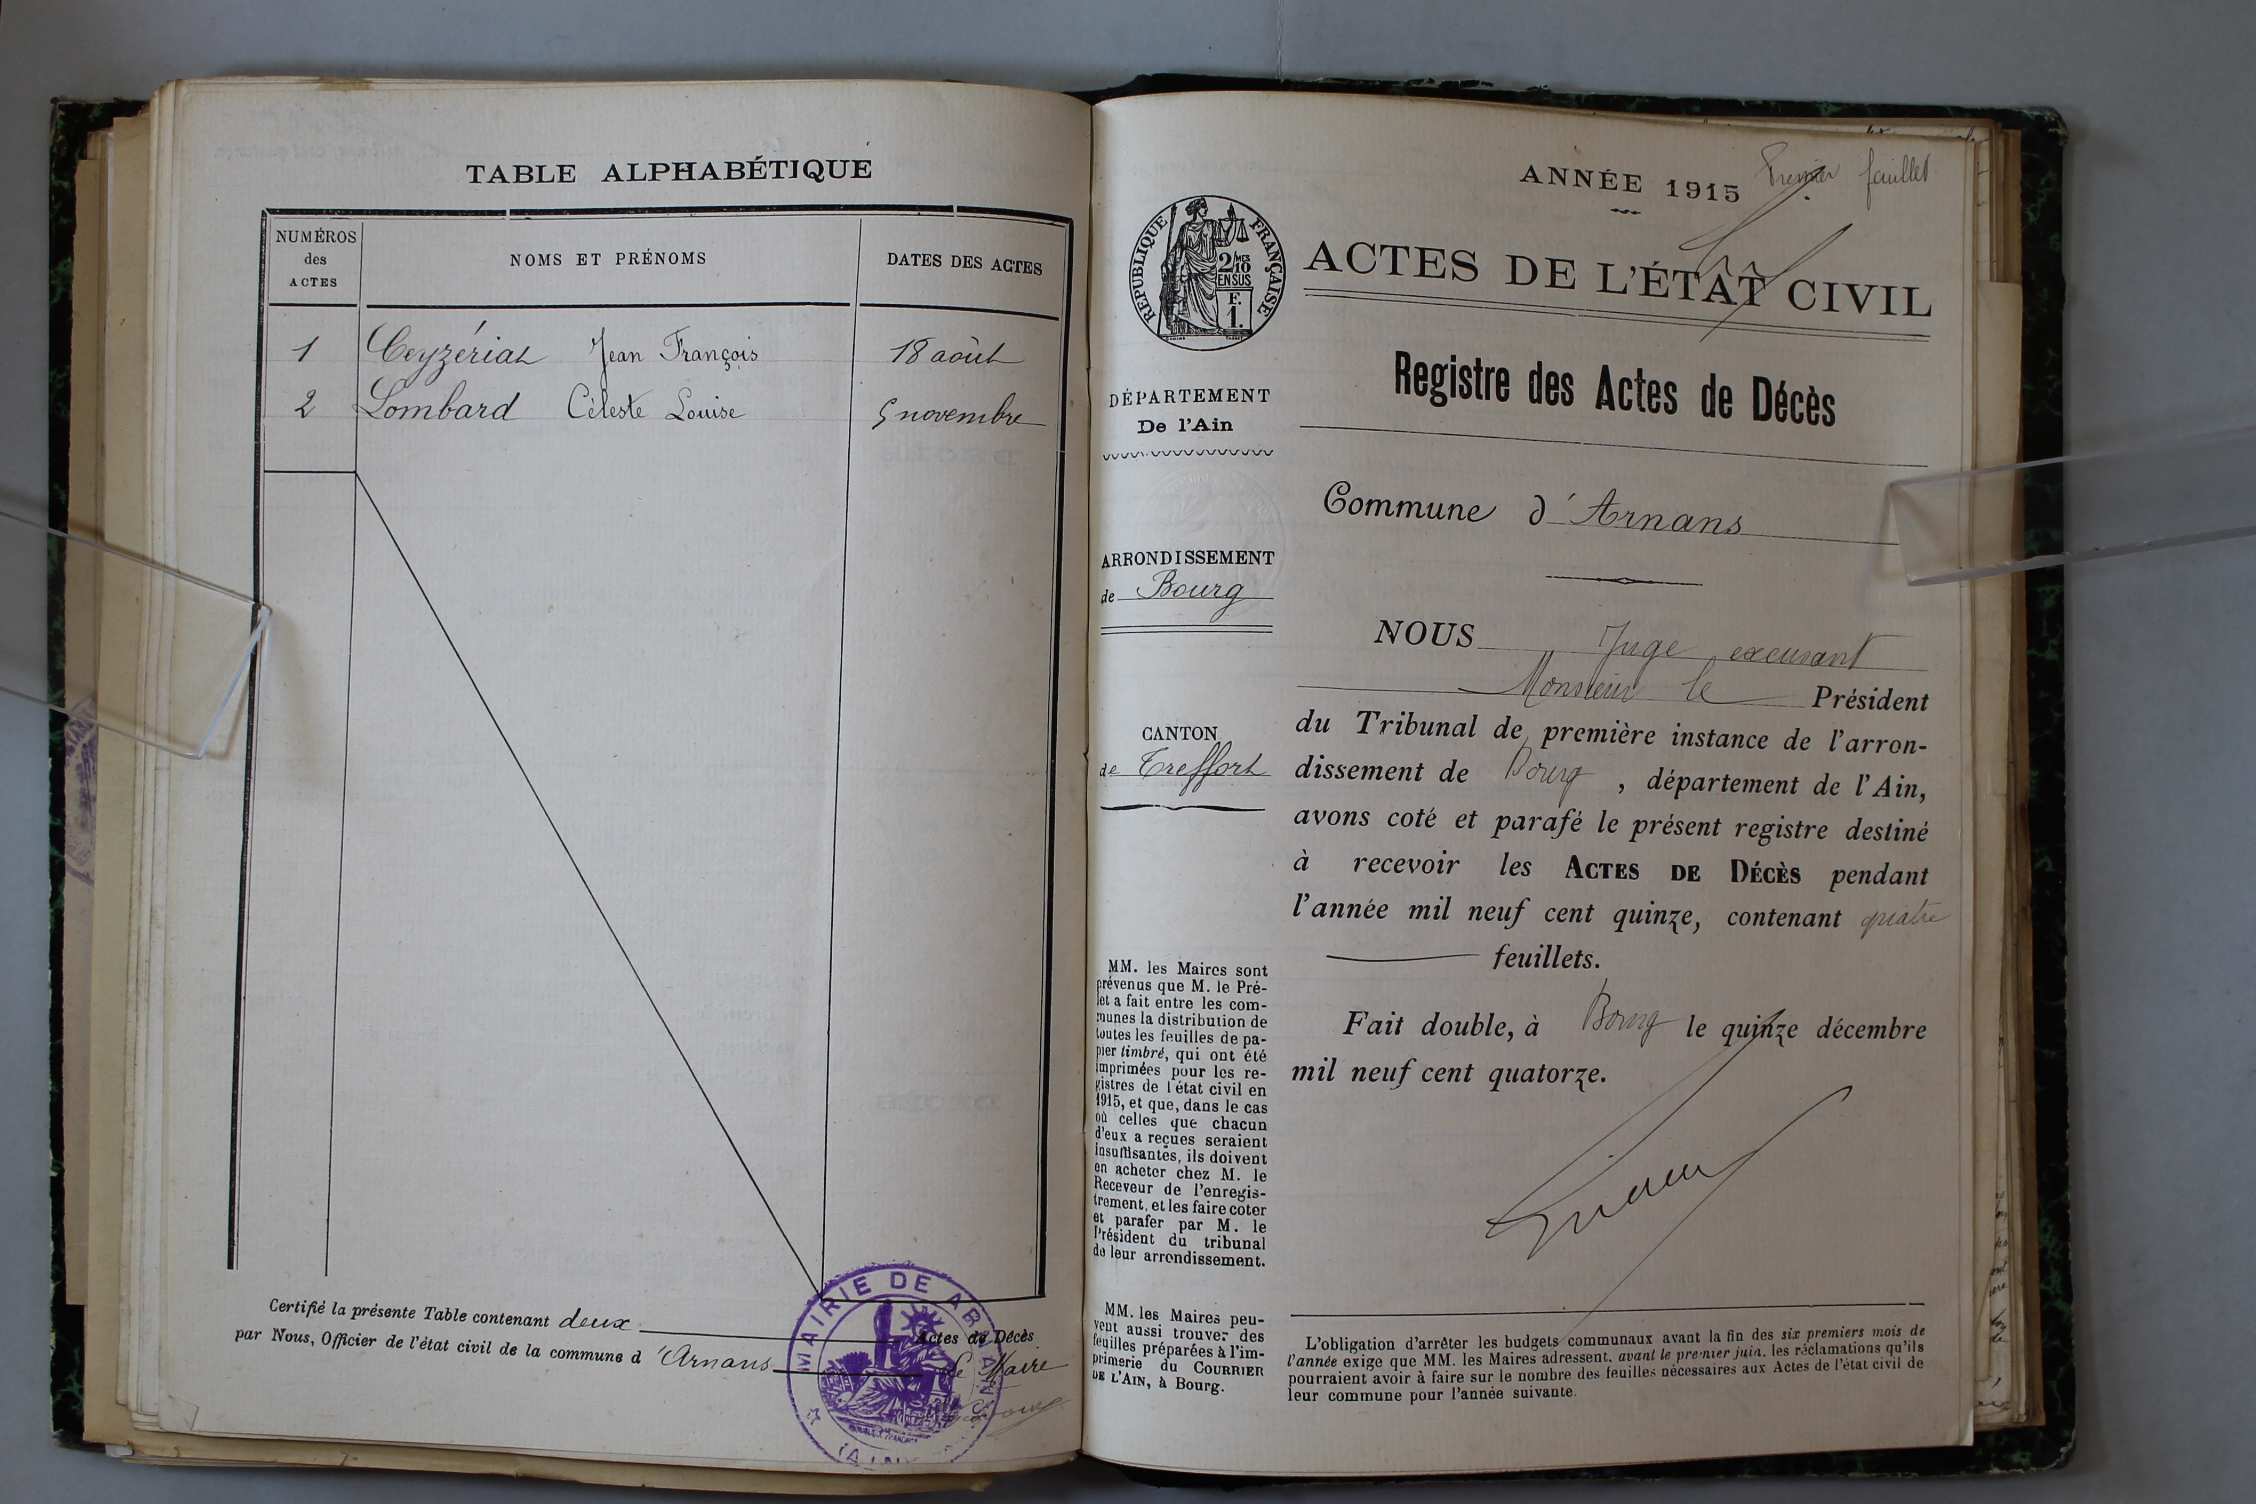 TABLE ALPHABÉTIQUE
NUMÉROS
des
ACTES
NOMS ET PRÉNOMS
DATES DES ACTES
1 Ceyzériat Jean François 18 août
2 Lombard Céleste Louise 5 novembre
Certifié la présente Table contenant deux Actes de Décès
par Nous, Officier de l'état civil de la commune d'Arnans
Le Maire
MAIRIE DE ARNANS
(AIN)
ANNÉE 1915
Premier feuillet
RÉPUBLIQUE FRANÇAISE
2/10 MES
EN SUS
F.
1.
ACTES DE L'ÉTAT CIVIL
Registre des Actes de Décès
DÉPARTEMENT
De l'Ain
Commune d'Arnans
ARRONDISSEMENT
de Bourg
CANTON
de Treffort
MM. les Maires sont
prévenus que M. le Pré-
fet a fait entre les com-
munes la distribution de
toutes les feuilles de pa-
pier timbré, qui ont été
imprimées pour les re-
gistres de l'état civil en
1915, et que, dans le cas
où celles que chacun
d'eux a reçues seraient
insuffisantes, ils doivent
en acheter chez M. le
Receveur de l'enregis-
trement, et les faire coter
et parafer par M. le
Président du tribunal
de leur arrondissement.
MM. les Maires peu-
vent aussi trouver des
feuilles préparées à l'im-
primerie du COURRIER
DE L'AIN, à Bourg.
NOUS Juge excusant
Monsieur le Président
du Tribunal de première instance de l'arron-
dissement de Bourg, département de l'Ain,
avons coté et parafé le présent registre destiné
à recevoir les ACTES DE DÉCÈS pendant
l'année mil neuf cent quinze, contenant quatre
feuillets.
Fait double, à Bourg le quinze décembre
mil neuf cent quatorze.
L'obligation d'arrêter les budgets communaux avant la fin des six premiers mois de
l'année exige que MM. les Maires adressent, avant le premier juin, les réclamations qu'ils
pourraient avoir à faire sur le nombre des feuilles nécessaires aux Actes de l'état civil de
leur commune pour l'année suivante.